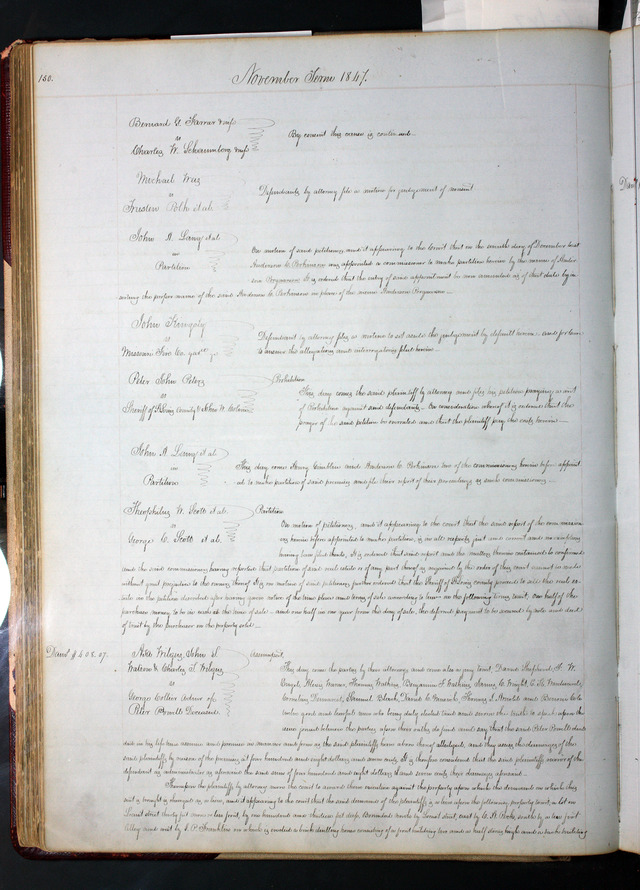 150.
November Term 1847.
Bernard G. Farrar & wife
vs
Charles W. Schaumburg & wife
By consent this cause is continued
Michail
vs
Trusten Polk et al.
Defendants by attorney file a motion for judgement of nonsuit
John A. Lamy et al
ex
Partition
On motion of said petitioners, and it appearing to the Court that on the day of December last
Anderson C. was appointed a commissioner to make partition herein by the name of Ander-
son it is ordered that the entry of said appointment be now amended as of that date by in-
serting the proper name of the said Anderson C. in place of the name Anderson
John
vs
Missouri Ins. Co.
Defendant by attorney files a motion to set aside the judgement by default herein, and for leave
to answer the allegations and interrogatories filed herein.
Peter John Peters
vs
Sheriff of St Louis County & John W.
Prohibition
This day comes the said plaintiff by attorney and files his petition praying a writ
of Prohibition against said defendants. On consideration whereof it is ordered that the
prayer of the said petition be overruled and that the plaintiff pay the costs herein
John A. Lamy et al
ex
Partition
This day come Henry and Anderson C. two of the commissioners herein before appoint-
ed to make partition of said premises and file their report of their proceedings as such commissioners.
Theophilus W. Scott et al.
vs
George C. Scott et al.
Partition
On motion of petitioners, and it appearing to the court that the said report of the commission-
ers herein before appointed to make partition, is in all respects just and correct and no exceptions
having been filed thereto, It is ordered that said report and the matters therein contained be confirmed
and the said commissioners having reported that partition of said real estate or of any part thereof as required by the order of this court cannot be made
without great prejudice to the owners thereof. It is on motion of said petitioners further ordered that the Sheriff of St Louis county proceed to sell the real es-
tate in the petition described after having given notice of the time place and terms of sale according to law on the following terms, to wit, One half of the
purchase money to be in cash at the time of sale, and one half in one year from the day of sale, the deferred payment to be secured by note and deed
of trust by the purchaser on the property sold.
Dam $408.07.
John S.
Watson & Charles S.
vs
George Collier admr of
Peter Powell Deceased.
Assumpsit.
This day come the parties by their attorneys, and come also a jury to wit, David Shepherd, F. W.
Warner, Thomas Watkins, Benjamin F. James C. Wright, C. H.
Cornelius Samuel Black, David C. Thomas J. Arnold and
twelve good and lawful men who being duly elected tried and sworn the truth to speak upon the
issue joined between the parties upon their oaths do find and say that the said Peter Powell deced
did in his life time assume and promise in manner and form as the said plaintiffs have above thereof alledged, and they assess the damages of the
said plaintiffs by reason of the premises at four hundred and eight dollars and seven cents. It is therefore considered that the said plaintiffs recover of the
defendant as administrator as aforesaid the said sum of four hundred and eight dollars and seven cents their damages aforesaid.
Thereupon the plaintiffs by attorney move the court to award them execution against the property upon which the demand on which this
suit is brought is charged as a lien, and it appearing to the court that the said demand of the plaintiffs is a lien upon the following property to wit, a lot on
Locust street thirty feet more or less front, by one hundred and thirteen feet deep, Bounded north by Locust street, east by south by a ten foot
Alley and west by Franklin on which is erected a brick dwelling house consisting of a front building two and a half stories high and a back building